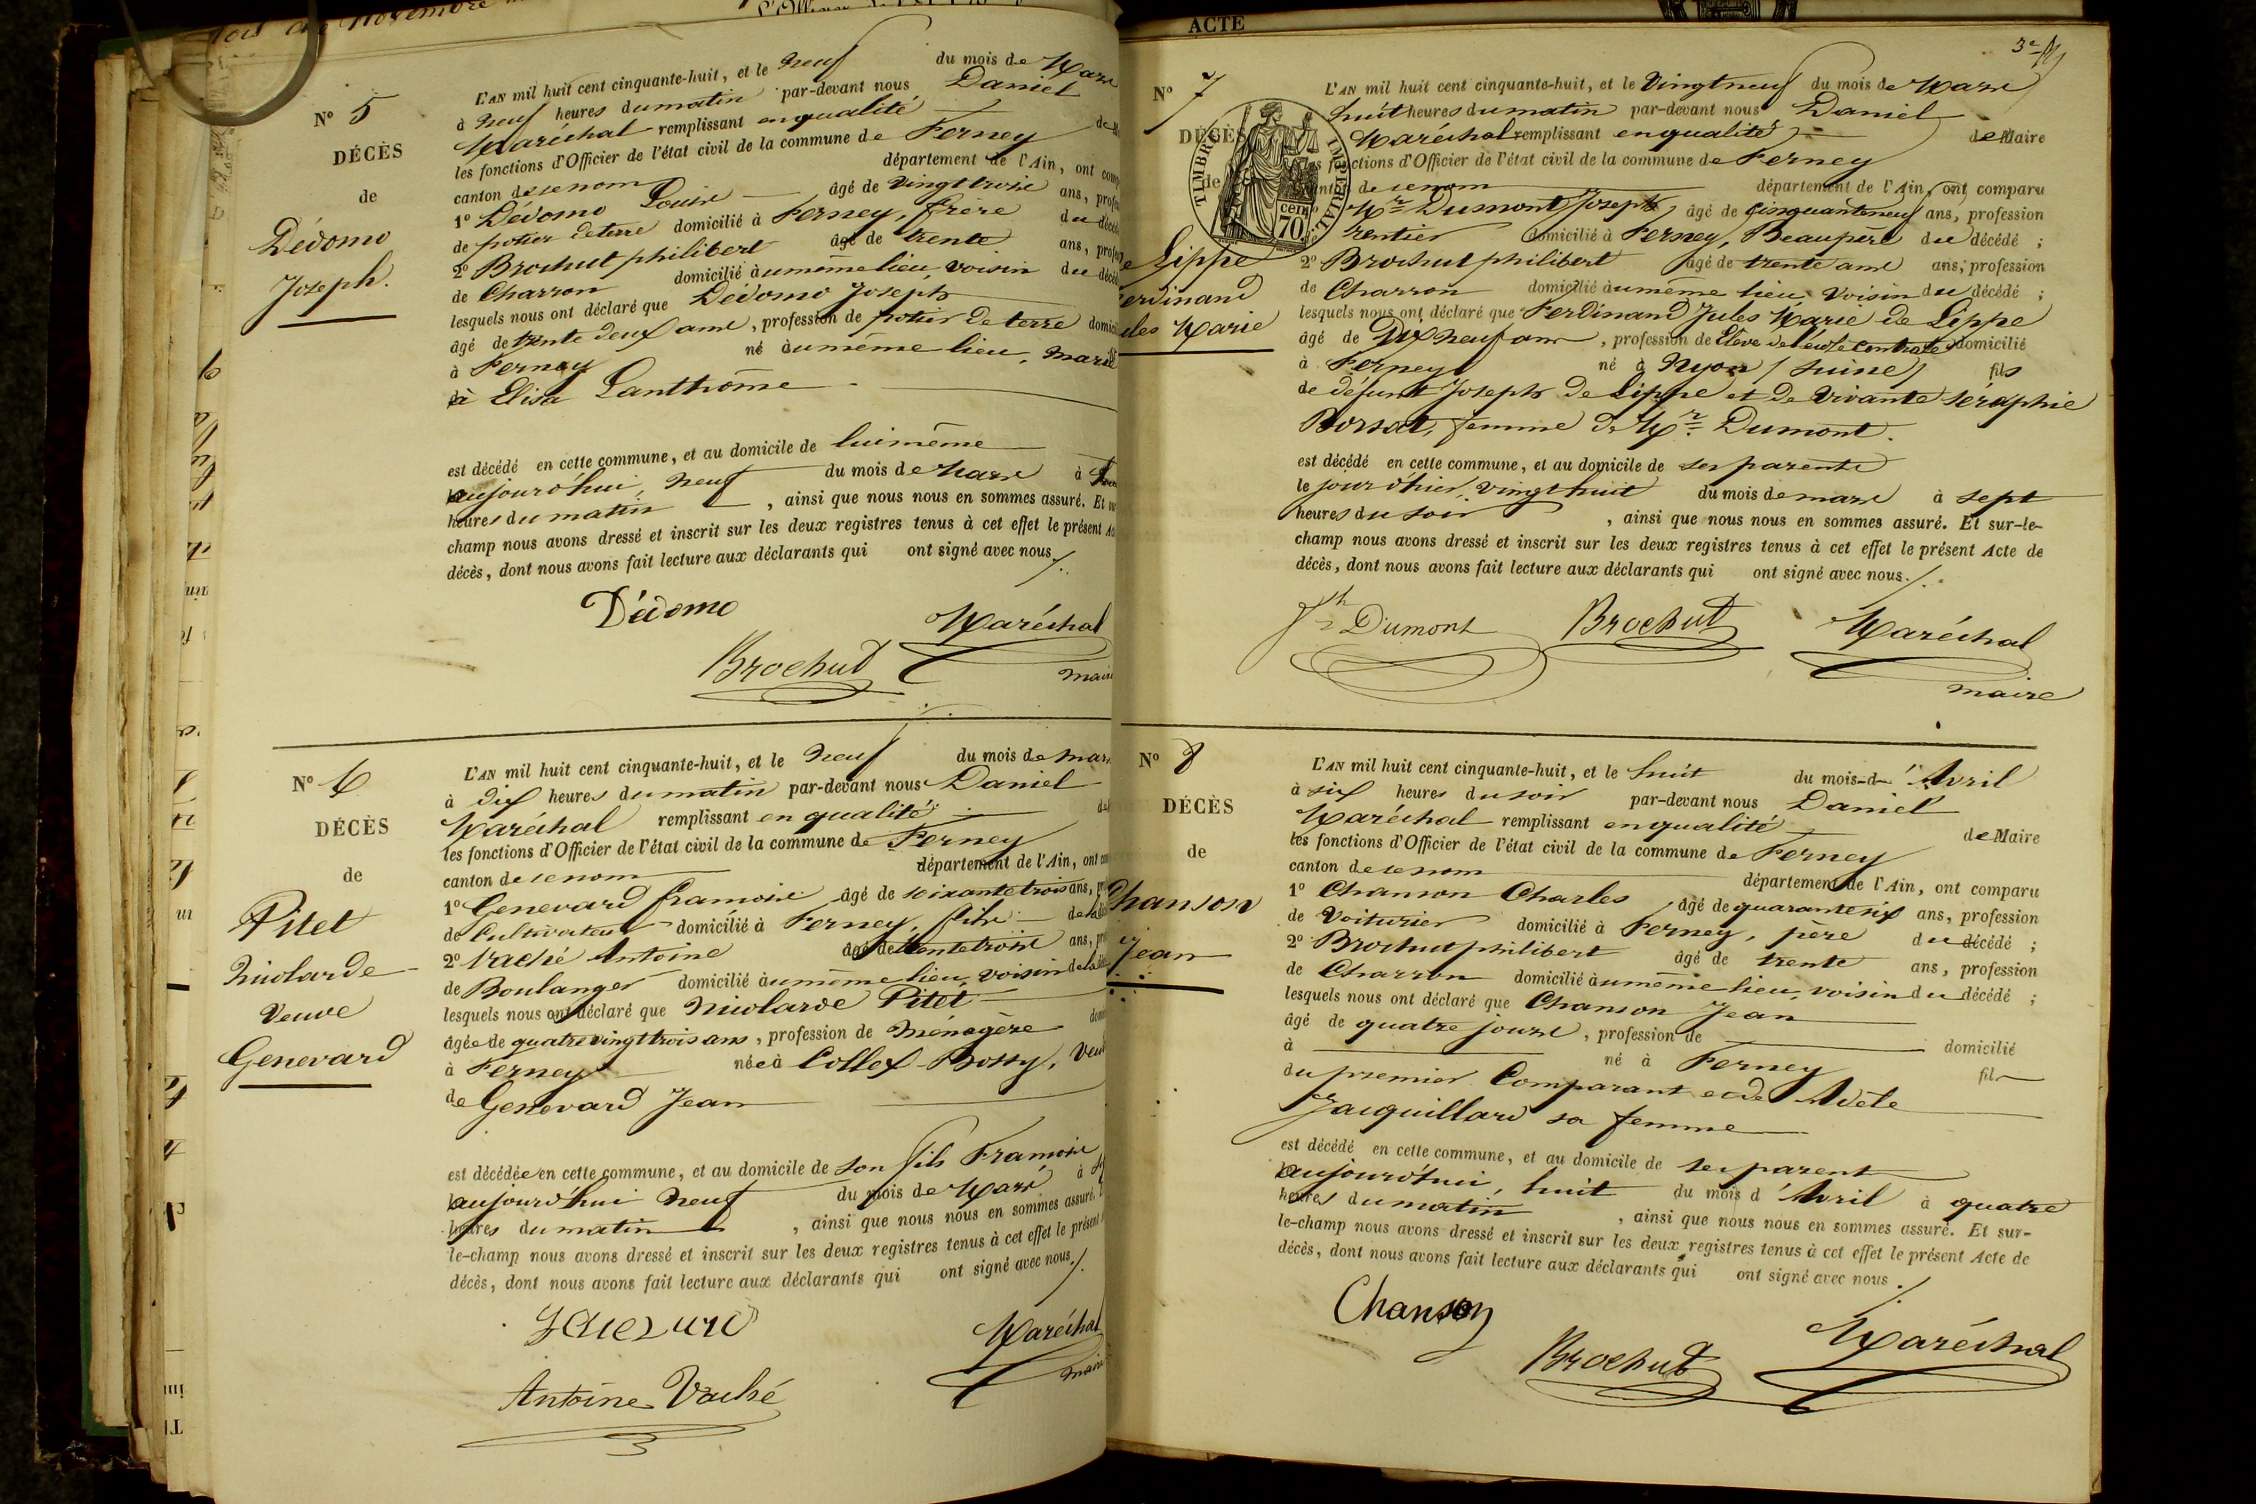 N° 5
DÉCÈS
de
Dédomo
Joseph.
L'AN mil huit cent cinquante-huit, et le neuf du mois de Mars
à neuf heures du matin par-devant nous Daniel
Maréchal remplissant en qualité
les fonctions d'Officier de l'état civil de la commune de Ferney
canton de ce nom département de l'Ain, ont
1° Dédomo Louis âgé de vingt trois ans,
de potier de terre domicilié à Ferney, frère du
2° Brochut philibert âgé de trente ans,
de Charron domicilié au même lieu, voisin du
lesquels nous ont déclaré que Dédomo Joseph
âgé de trente deux ans, profession de potier de terre
à Ferney né au même lieu, marié
à Elisa Lanthrôme
est décédé en cette commune, et au domicile de lui même
aujourd'hui, neuf du mois de Mars à
heures du matin, ainsi que nous nous en sommes assuré. Et
champ nous avons dressé et inscrit sur les deux registres tenus à cet effet le présent
décès, dont nous avons fait lecture aux déclarants qui ont signé avec nous.
Dédomo
Maréchal
Brochut
maire
N° 6
DÉCÈS
de
Pitet
Nicolarde
Veuve
Genevard
L'AN mil huit cent cinquante-huit, et le neuf du mois de mars
à dix heures du matin par-devant nous Daniel
Maréchal remplissant en qualité
les fonctions d'Officier de l'état civil de la commune de Ferney
canton de ce nom département de l'Ain, ont
1° Genevard François âgé de soixante trois ans,
de Cultivateur domicilié à Ferney, fils
2° Vaché Antoine âgé de trente trois ans,
de Boulanger domicilié au même lieu, voisin de la
lesquels nous ont déclaré que Nicolarde Pitet
âgée de quatre vingt trois ans, profession de Ménagère
à Ferney née à Collex-Bossy,
de Genevard Jean
est décédée en cette commune, et au domicile de son fils François
aujourd'hui neuf du mois de Mars à
heures du matin, ainsi que nous nous en sommes assuré.
le-champ nous avons dressé et inscrit sur les deux registres tenus à cet effet le présent
décès, dont nous avons fait lecture aux déclarants qui ont signé avec nous.
Maréchal
maire
Antoine Vaché
ACTE
N° 7
DÉCÈS
de
TIMBRE IMPÉRIAL
cen
70
Lippe
L'AN mil huit cent cinquante-huit, et le Vingt neuf du mois de Mars
huit heures du matin par-devant nous Daniel
Maréchal remplissant en qualité de Maire
fonctions d'Officier de l'état civil de la commune de Ferney
de ce nom département de l'Ain, ont comparu
Mr Dumont Joseph, âgé de cinquante neuf ans, profession
rentier domicilié à Ferney, Beaupère du décédé ;
2° Brochut philibert âgé de trente ans ans, profession
de Charron domicilié au même lieu, Voisin du décédé ;
lesquels nous ont déclaré que Ferdinand Jules Marie de Lippe
âgé de Dix neuf ans, profession de Elève de l'école Centrale domicilié
à Ferney né à Nyon (Suisse) fils
de défunt Joseph de Lippe et de Vivante séraphie
Borsat, femme de Mr. Dumont.
est décédé en cette commune, et au domicile de ses parents
le jour d'hier, vingt huit du mois de mars à sept
heures du soir, ainsi que nous nous en sommes assuré. Et sur-le-
champ nous avons dressé et inscrit sur les deux registres tenus à cet effet le présent Acte de
décès, dont nous avons fait lecture aux déclarants qui ont signé avec nous.
Jph Dumont
Brochut
Maréchal
maire
N° 8
DÉCÈS
de
Chanson
Jean
L'AN mil huit cent cinquante-huit, et le huit du mois d'Avril
à six heures du soir par-devant nous Daniel
Maréchal remplissant en qualité de Maire
les fonctions d'Officier de l'état civil de la commune de Ferney
canton de ce nom département de l'Ain, ont comparu
1° Chanson Charles, âgé de quarante six ans, profession
de Voiturier domicilié à Ferney, père du décédé ;
2° Brochut philibert âgé de trente ans, profession
de Charron domicilié au même lieu, voisin du décédé ;
lesquels nous ont déclaré que Chanson Jean
âgé de quatre jours, profession de domicilié
à né à Ferney fils
du premier Comparant et de Adèle
Jacquillard sa femme
est décédé en cette commune, et au domicile de ses parent
aujourd'hui, huit du mois d'Avril à quatre
heures du matin, ainsi que nous nous en sommes assuré. Et sur-
le-champ nous avons dressé et inscrit sur les deux registres tenus à cet effet le présent Acte de
décès, dont nous avons fait lecture aux déclarants qui ont signé avec nous.
Chanson
Brochut
Maréchal